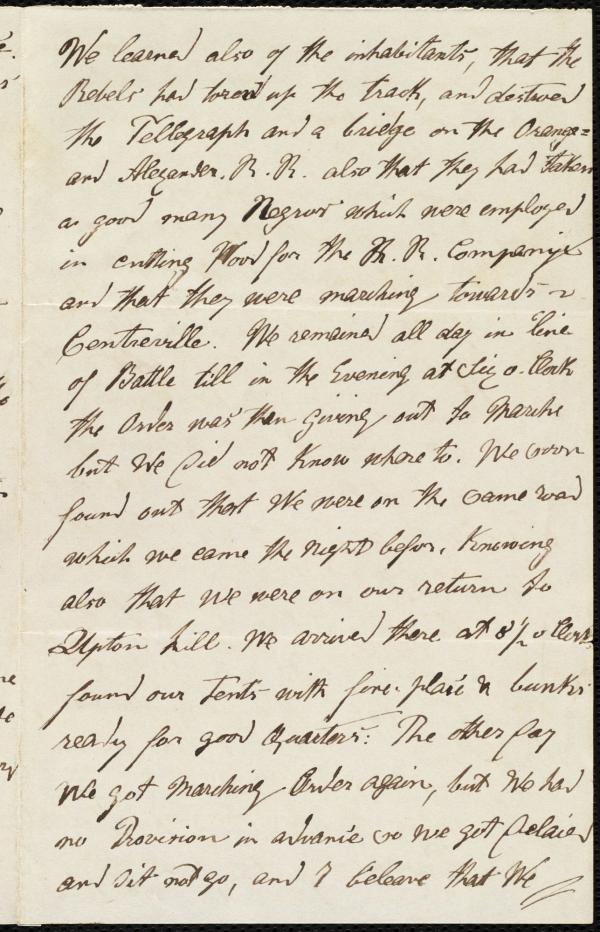 We learned also of the inhabitants, that the
Rebels had toren up the track, and destroed
the Tellegraph and a bridge on the Orange=
and Alexander. R. R. also that they had taken
a good many Negros which were employed
in cutting Wood for the R. R. Companije
and that they were marching towards
Centreville. We remained all day in line
of Battle till in the Evening at Six o. Clock
the Order was then giving out to Marche
but We did not Know where to. We soon
found out that We were on the same road
which we came the night befor. Knowing
also that we were on our return to
Upton hill. We arrived there at 8½ o Clock
found our Tents with fire. place & bunks
ready for good Quarters: The other day
We got Marching Order again, but We had
no Provision in advance so we got delaied
and dit not go, and I beleave that We